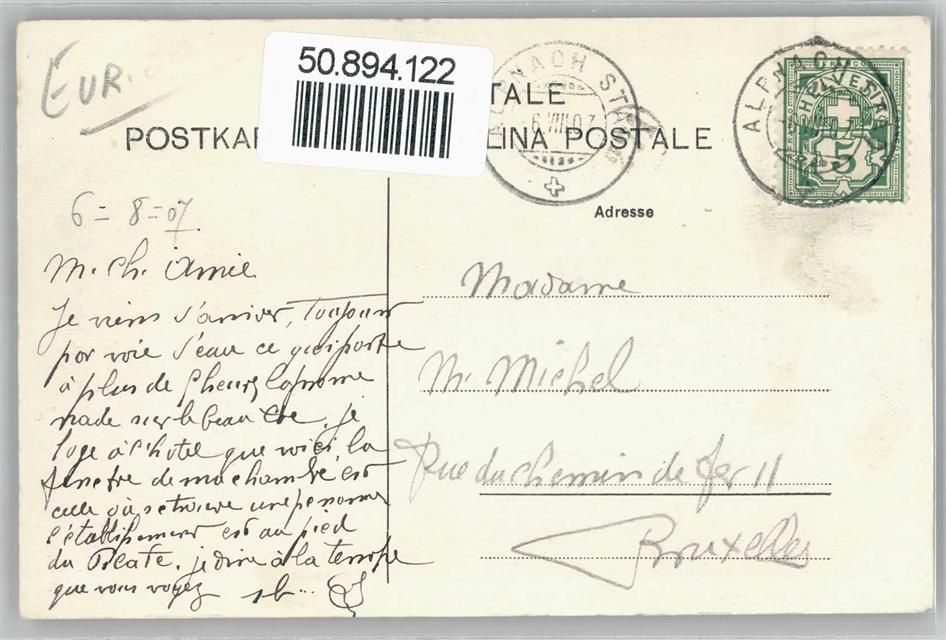 EUR.
50.894.122
TALE
POSTKA LINA POSTALE
ALPNACH STAD
6.VIII.07
ALPNACH
HELVETIA
5
Adresse
6 = 8 = 07.
M. ch. Amie
Je viens d'arriver, Toujour
par voie d'eau ce qui porte
à plus de 8 heures la prome
nade sur le beau lac. je
loge à l'hotel que voici, la
fenetre de ma chambre est
celle où se trouve une personne
l'établissement est au pied
du Pilate. je dine à la terrasse
que vous voyez
Madame
M. Michel
Rue du chemin de fer 11
Bruxelles